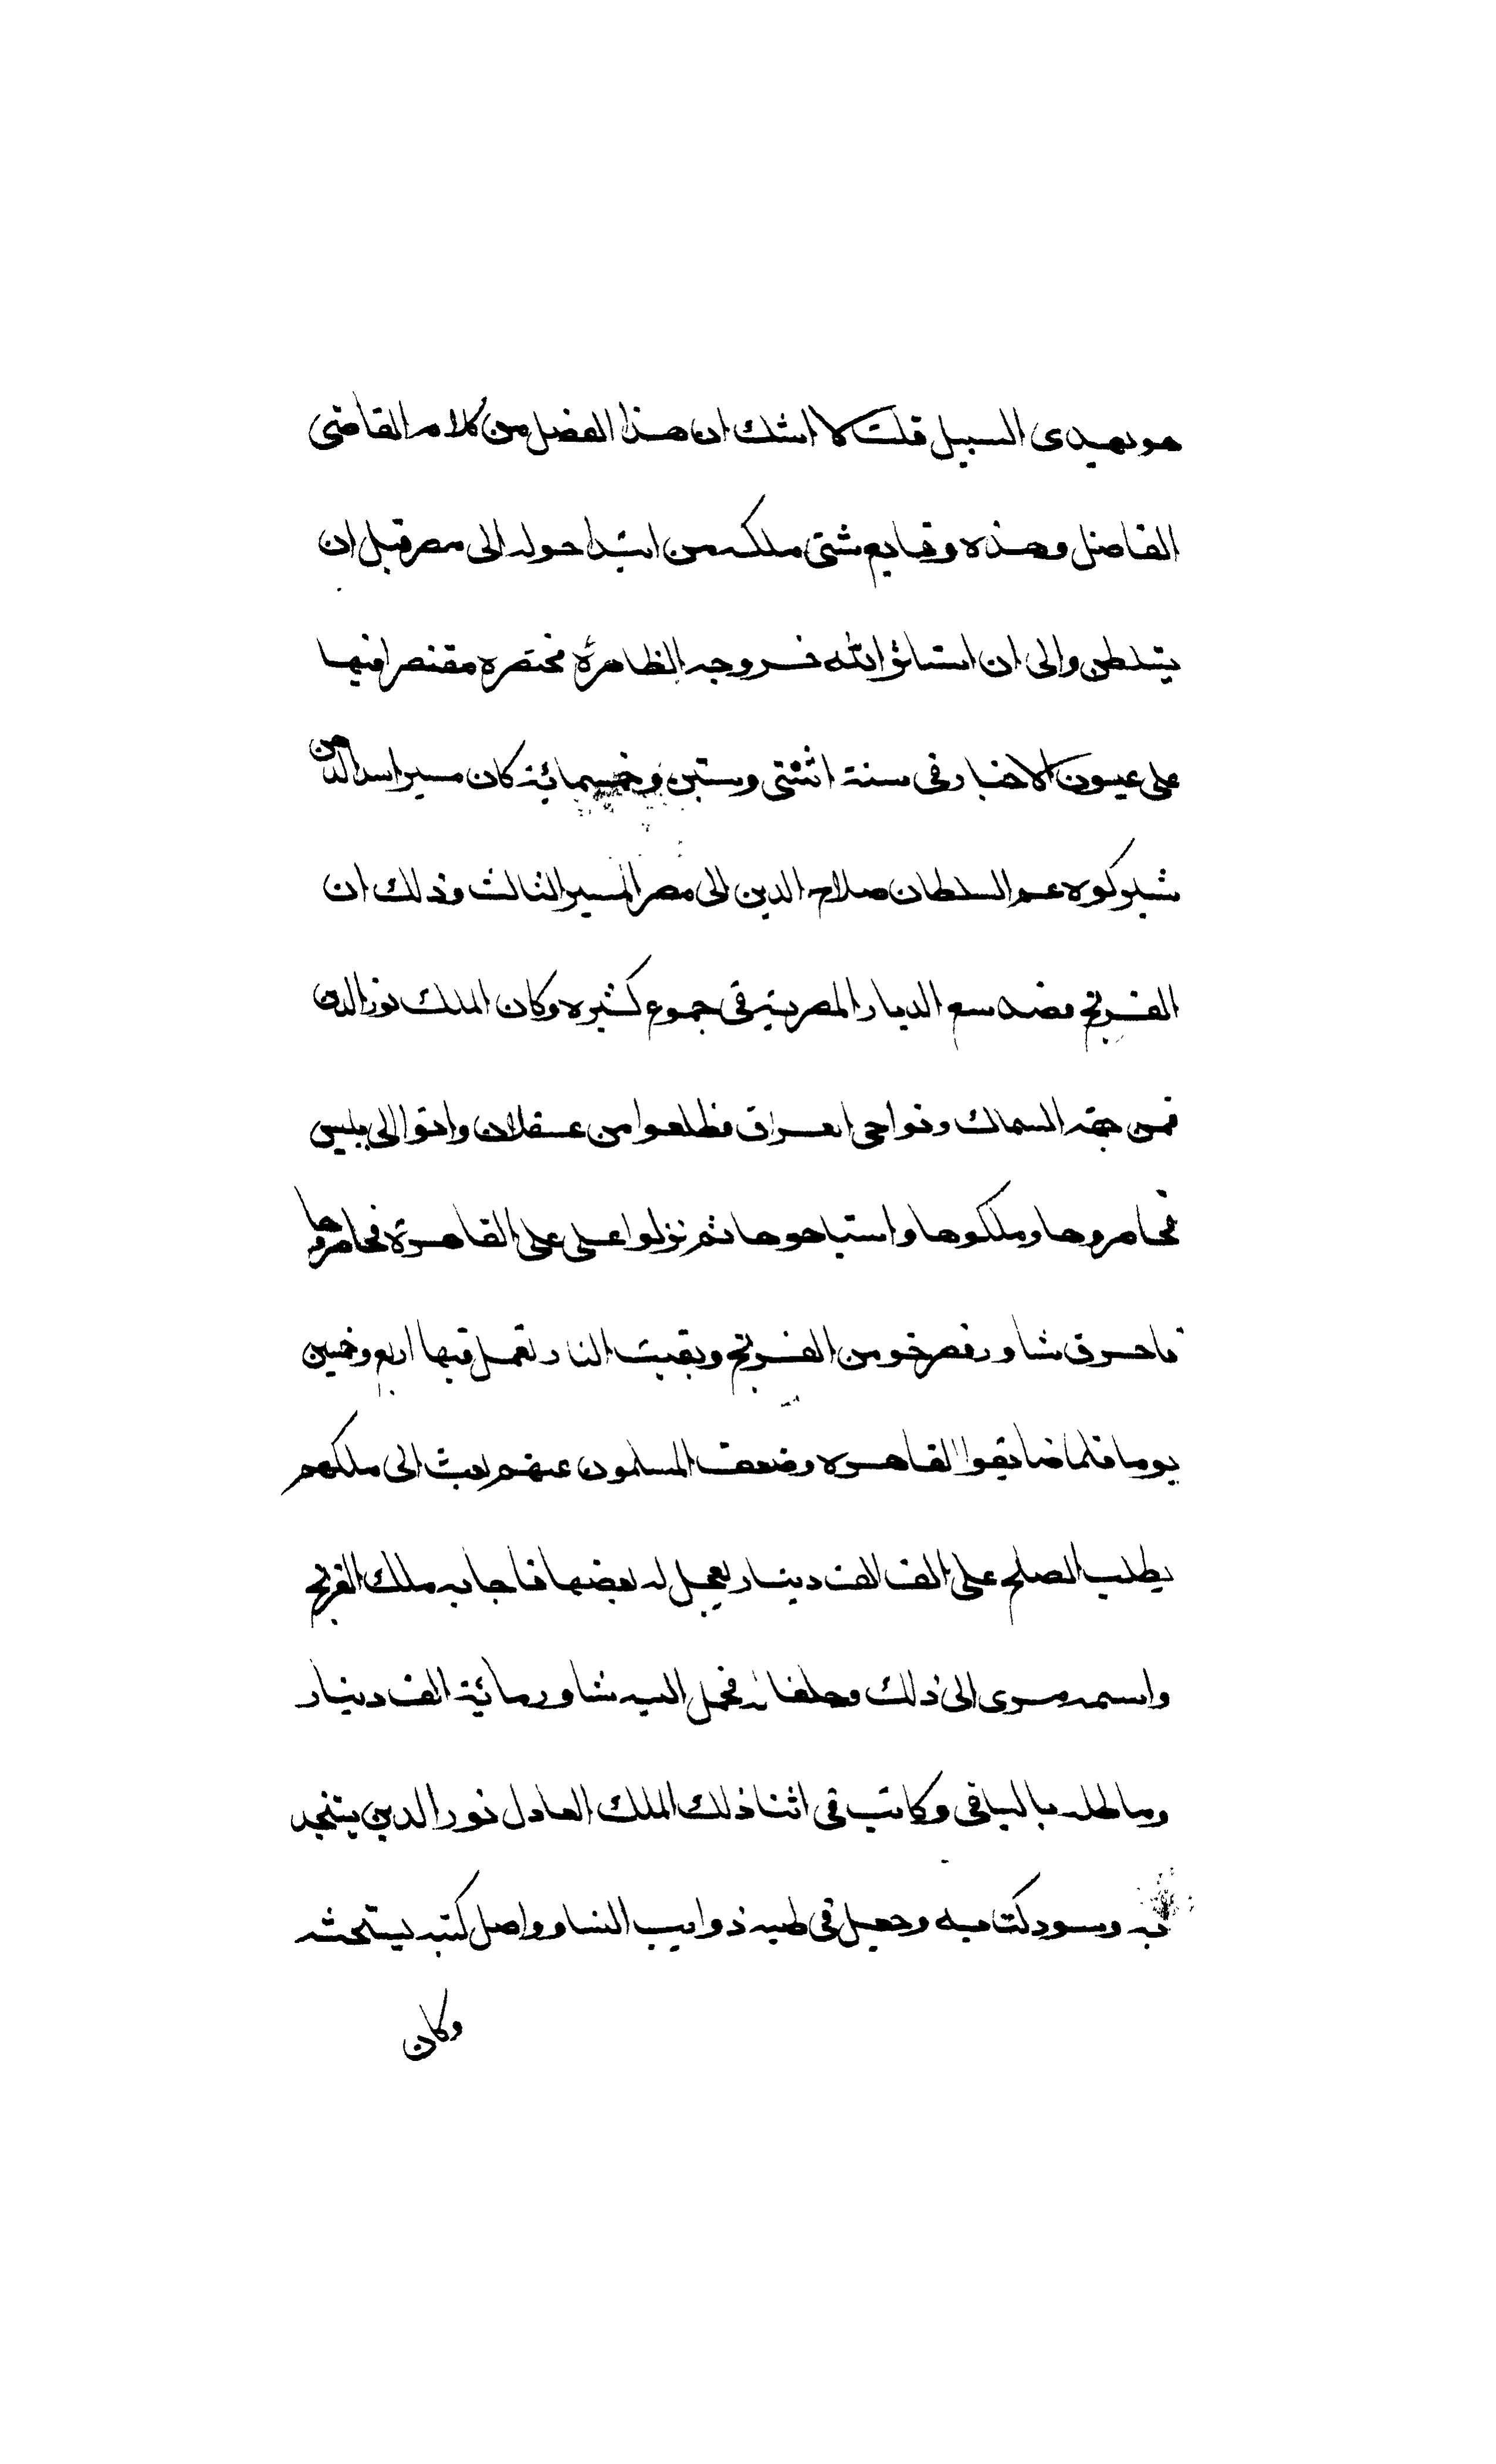 هو يهدى السبيل قلت لا اشك ان هذا الفصل من كلام القاضى
الفاضل وهذه وقايع شتى ملكه من ابتدا حوله الى مصر قبل ان
يتسلطن والى ان استاثر الله بروحه الظاهرة مختصره مقتصرا فيها
على عيون الاخبار فى سنة اثنتى وستين وخمسمائة كان مسير اسد الدين
شيركوه عم السلطان صلاح الدين الى مصر المسير الثالث وذلك ان
الفرنج قصدت الديار المصرية فى جموع كثيره وكان الملك نور الدين
فمن جهة السماك ونواحى العراق فطلعوا من عسقلان واتوا الى بلبيس
فحاصروها وملكوها واستباحوها ثم نزلوا على على القاهرة فحاصروها
فاحرق شاور مصر خو من الفرنج وبقيت النار تعمل فيها اربع وخمسين
يوما فلما ضايقوا القاهره وضعف المسلمون عنهم بعث الى ملكهم
يطلب الصلح على الف الف دينار يعجل له بعضها فاجابه ملك الفرنج
واسمه مرى الى ذلك وحلفا له فحمل اليه شاور مائة الف دينار
وماطله بالباقى وكاتب فى اثنا ذلك الملك العادل نور الدين يستنجد
به وسود كتابه وجعل فى طيه ذوايب النسا وواصل كتبه يستحثه
وكان